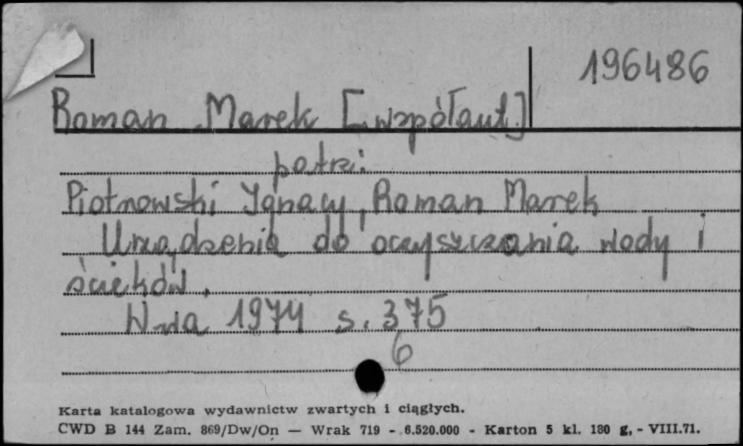 196486
Roman Marek [współaut.]
patrz:
Piotrowski Ignacy, Roman Marek
Urządzenia do oczyszczania wody i
ścieków.
W-wa 1974 s. 375
6
Karta katalogowa wydawnictw zwartych i ciągłych.
CWD B 144 Zam. 869/Dw/On — Wrak 719 - 6.520.000 - Karton 5 kl. 180 g, - VIII.71.